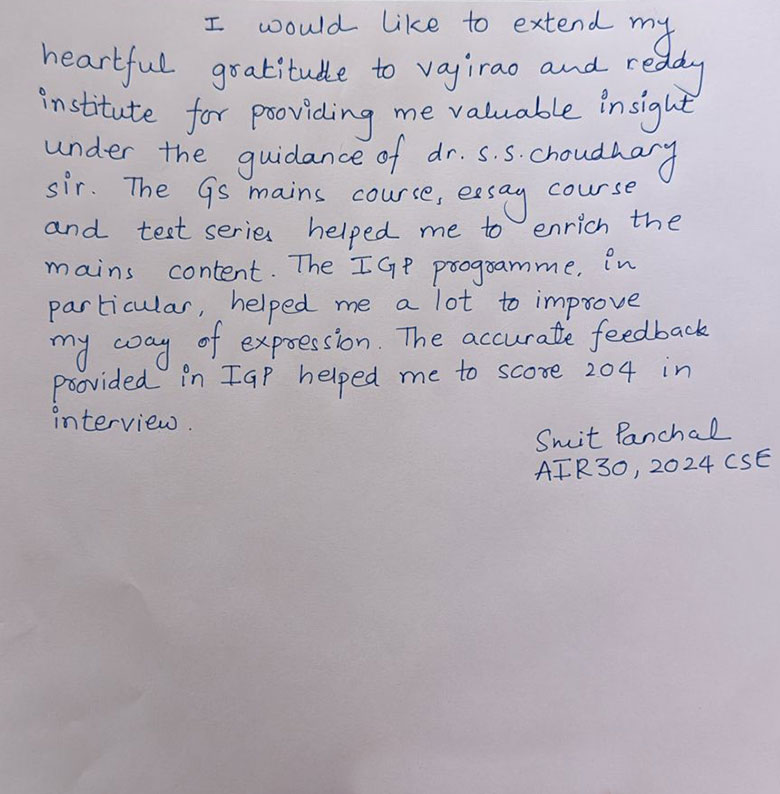 I would like to extend my
heartful gratitude to vajirao and reddy
institute for providing me valuable insight
under the guidance of dr. s.s. choudhary
sir. The GS mains course, essay course
and test series helped me to enrich the
mains content. The IGP programme, in
particular, helped me a lot to improve
my way of expression. The accurate feedback
provided in IGP helped me to score 204 in
interview.
Smit Panchal
AIR30, 2024 CSE